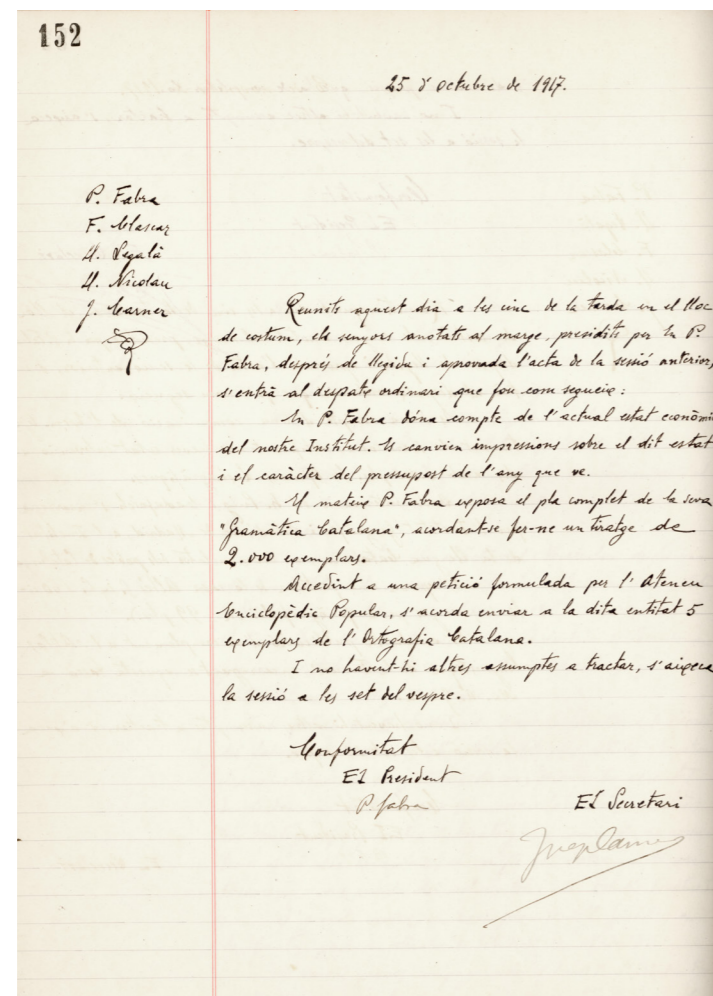 152
25 d'octubre de 1917.
P. Fabra
F. Clascar
A. Segalà
Ll. Nicolau
J. Carner
Reunits aquest dia a les cinc de la tarda en el lloc
de costum, els senyors anotats al marge, presidits per En P.
Fabra, després de llegida i aprovada l'acta de la sessió anterior,
s'entrà al despatx ordinari que fou com segueix:
En P. Fabra dóna compte de l'actual estat econòmic
del nostre Institut. Es canvien impressions sobre el dit estat
i el caràcter del pressupost de l'any que ve.
El mateix P. Fabra exposa el pla complet de la seva
"Gramàtica Catalana", acordant-se fer-ne un tiratge de
2.000 exemplars.
Accedint a una petició formulada per l'Ateneu
Enciclopèdic Popular, s'acorda enviar a la dita entitat 5
exemplars de l'Ortografia Catalana.
I no havent-hi altres assumptes a tractar, s'aixeca
la sessió a les set del vespre.
Conformitat
El President
P. Fabra
El Secretari